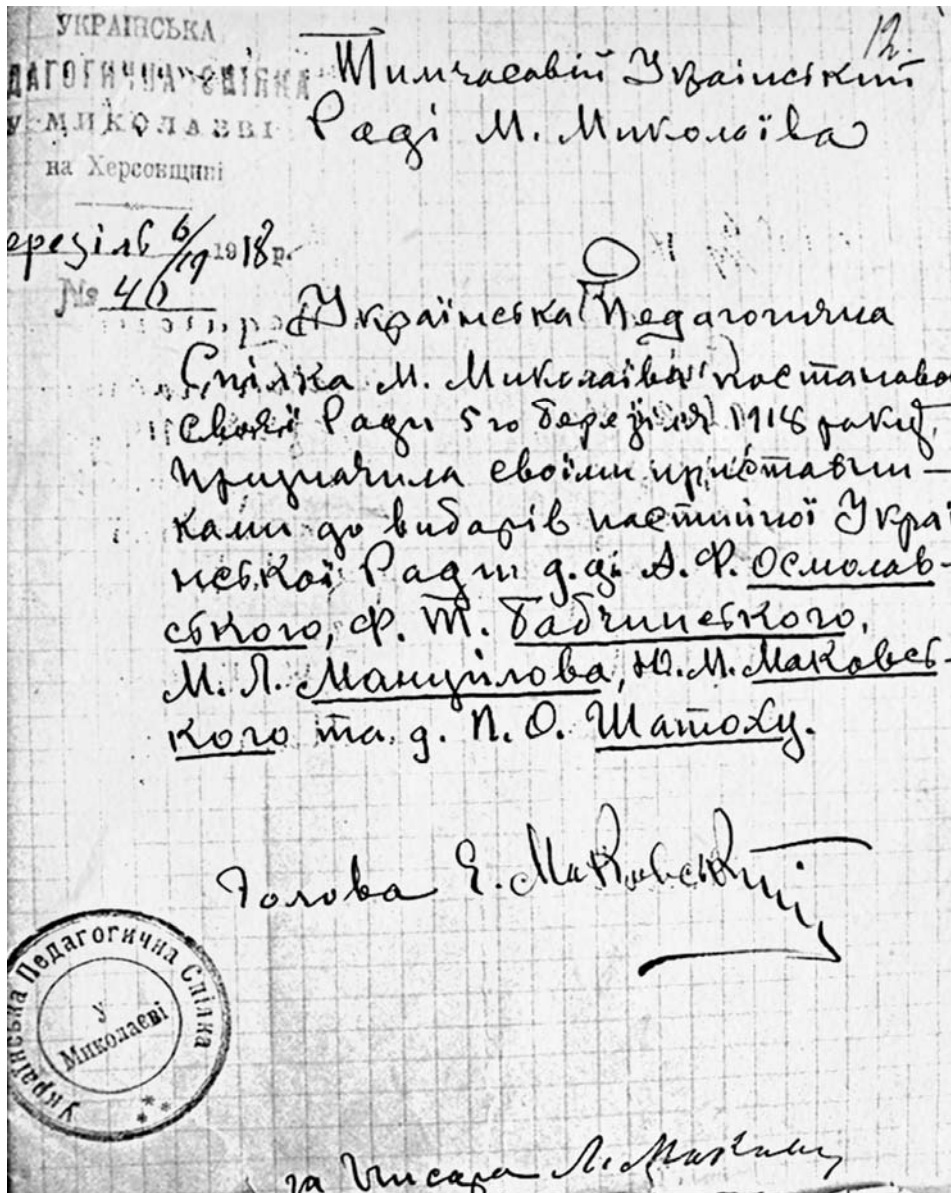 УКРАІНСЬКА
ДАГОГИЧНА СПІЛКА
У МИКОЛАЕВІ
на Херсонщині
ерезіль 6/19 1918 р.
№ 40
12.
Тимчасовій Украінський
Раді М. Миколаїва
Українська Педагогична
Спілка М. Миколаіва постаново
своєї Ради 5 го березіля 1918 року,
призначила своїми приставни-
ками до виборів постийної Украї
нської Ради д.д. А. Ф. Осмолов-
ського, Ф. Т. Бабчинського,
М. Л. Мануйлова, Ю. М. Маковсь-
кого та д. П. О. Шатоху.
Голова Е. Маковський
Українська Педагогична Спілка
У
Миколаєві
за Писаря